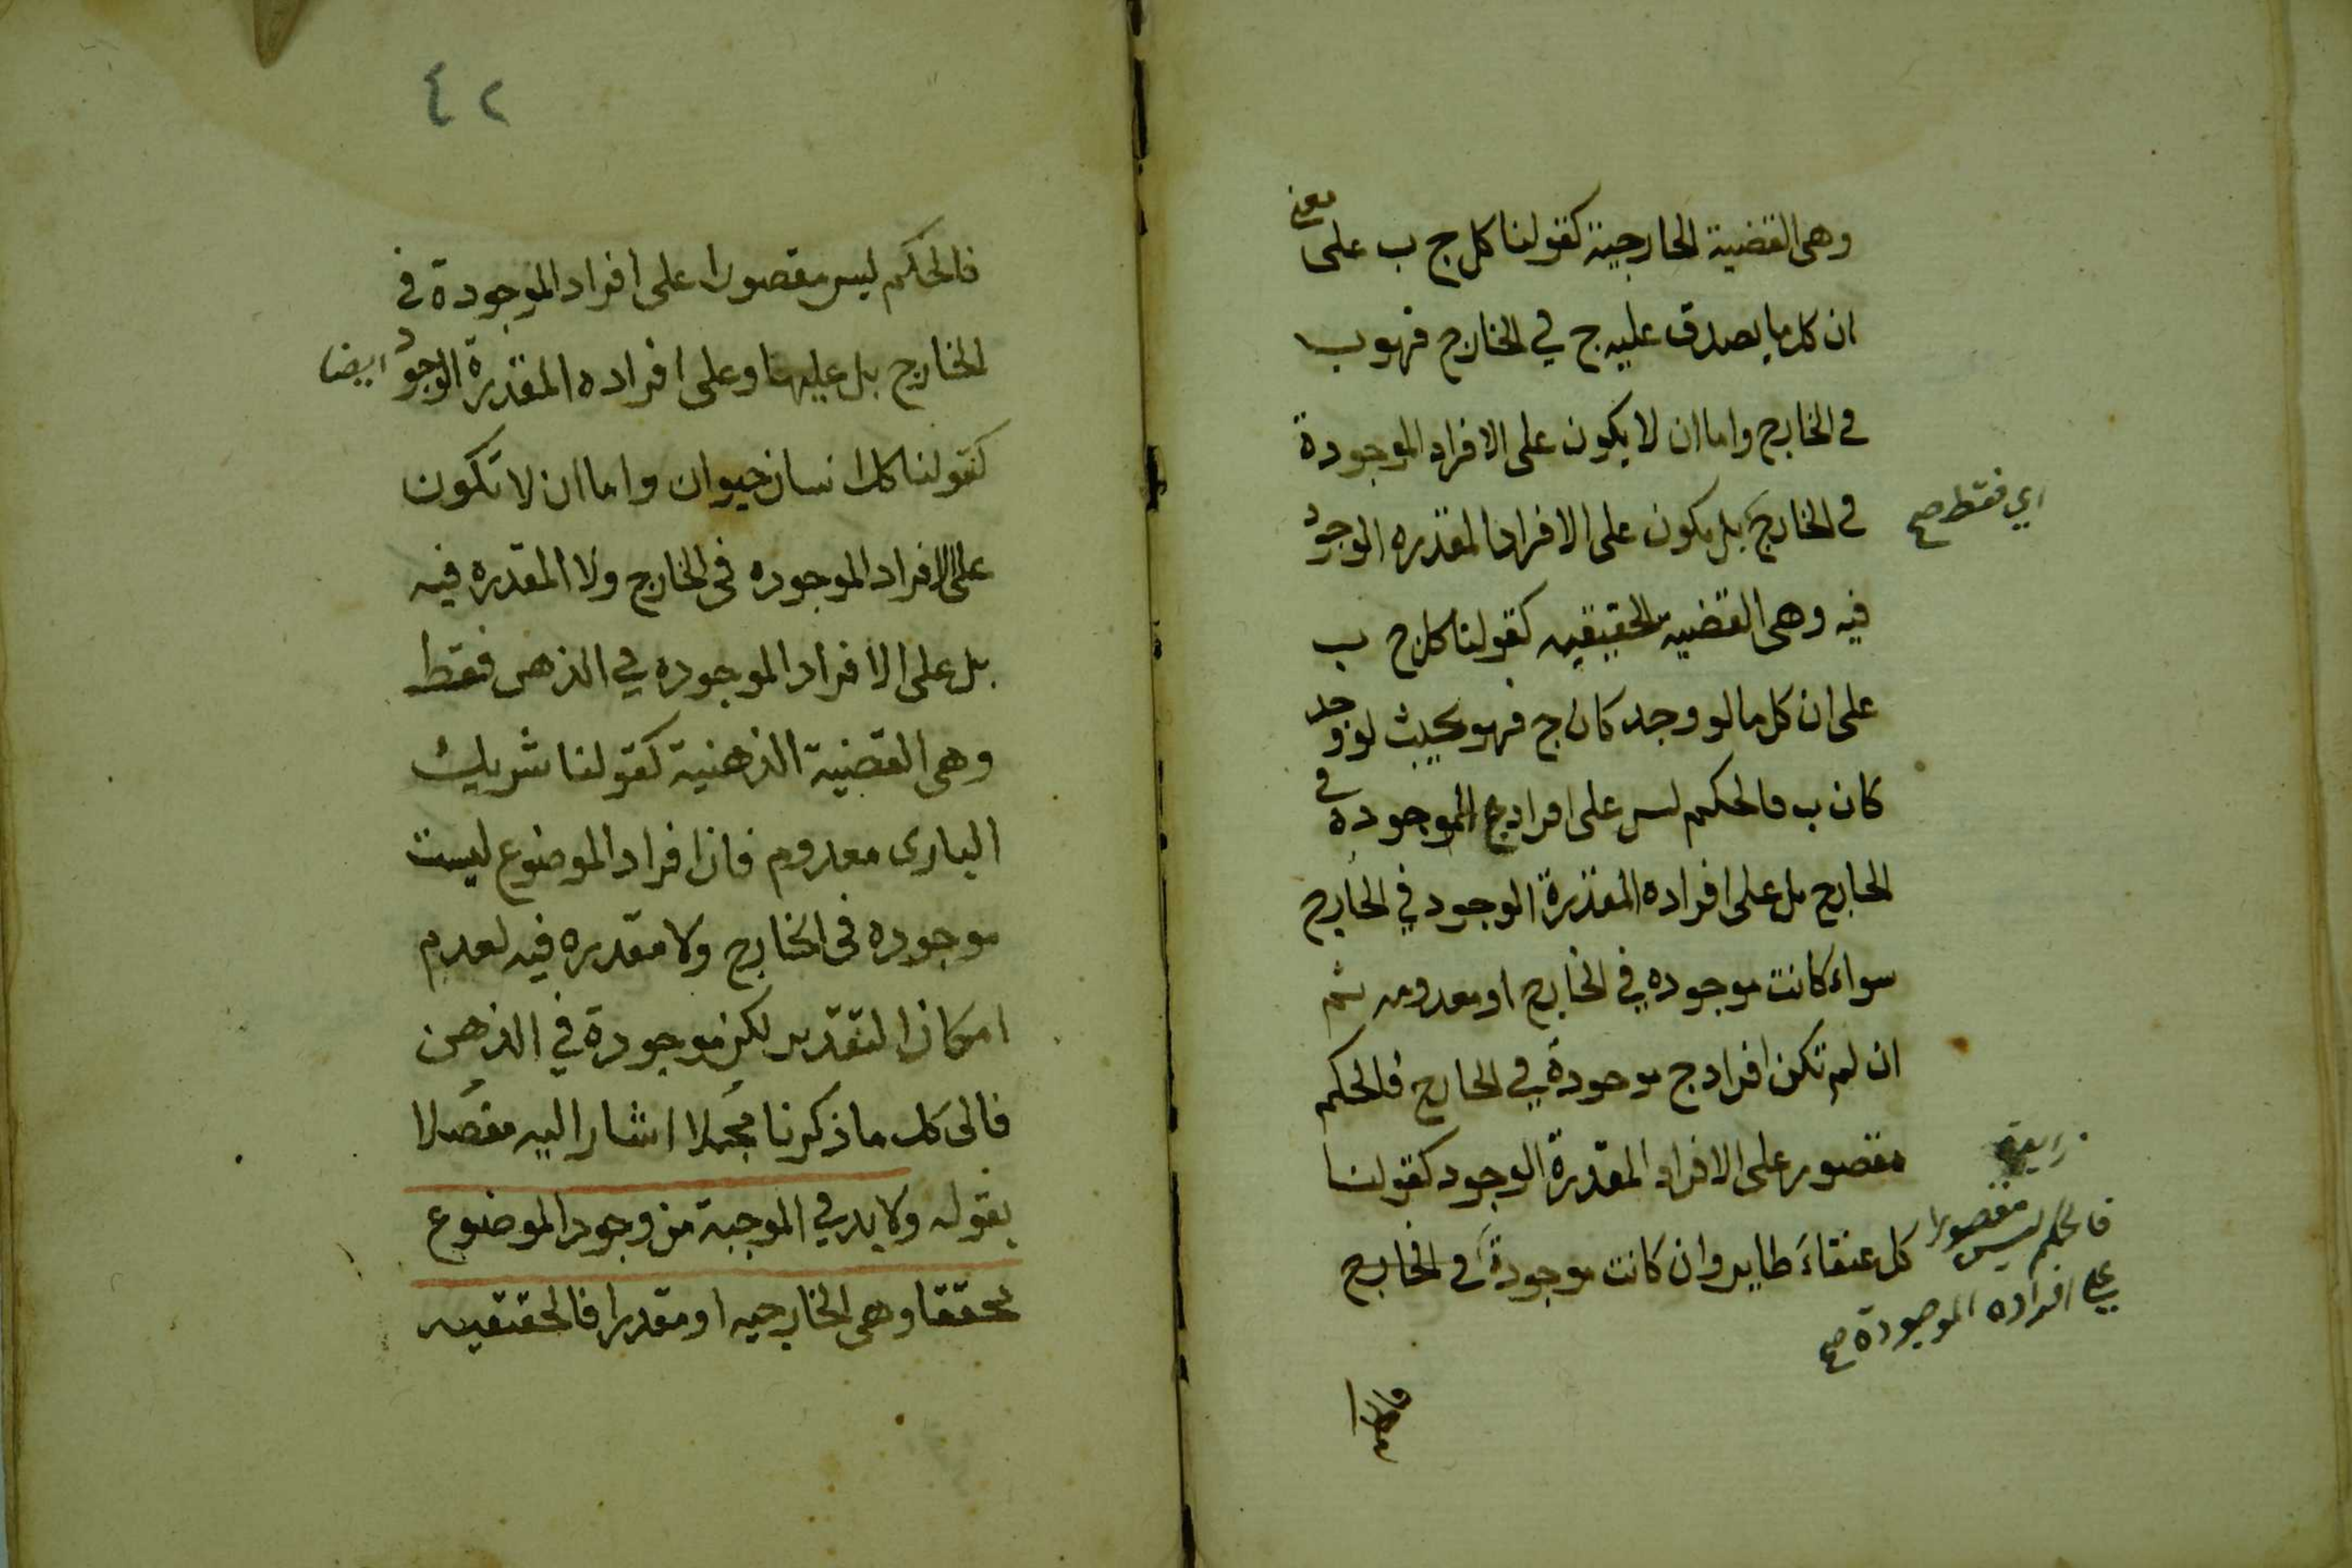 وهى القضية الخارجية كقولنا كل ج ب على معنى
ان كل ما يصدق عليه ج في الخارج فهو ب
في الخارج واما ان لا يكون على الافراد الموجودة
في الخارج بل يكون على الافراد المقدره الوجود
اي فقط صح
فيه وهى القضيه الحقيقيه كقولنا كل ج ب
على ان كل ما لو وجد كان ج فهو بحيث لو وجد
كان ب فالحكم ليس على افراد ج الموجودة في
الخارج بل على افراده المقدرة الوجود في الخارج
سواء كانت موجوده في الخارج او معدومه ثم
ان لم تكن افراد ج موجودة في الخارج فالحكم
مقصور على الافراد المقدرة الوجود كقولنا
كل عنقاء طاير وان كانت موجودة في الخارج
فالحكم ليس مقصورا
على افراده الموجودة صح
٤٢
فالحكم ليس مقصورا على افراد الموجودة في
الخارج بل عليها وعلى افراده المقدرة الوجود ايضا
كقولنا كل انسان حيوان واما ان لا تكون
على الافراد الموجوده فى الخارج ولا المقدره فيه
بل على الافراد الموجوده في الذهن فقط
وهى القضية الذهنية كقولنا شريك
البارى معدوم فان افراد الموضوع ليست
موجوده فى الخارج ولا مقدره فيه لعدم
امكان التقدير لكن موجودة في الذهن
فالى كل ما ذكرنا مجملا اشار اليه مفصلا
بقوله ولا بد في الموجبة من وجود الموضوع
محققا وهى الخارجيه او مقدرا فالحقيقيه